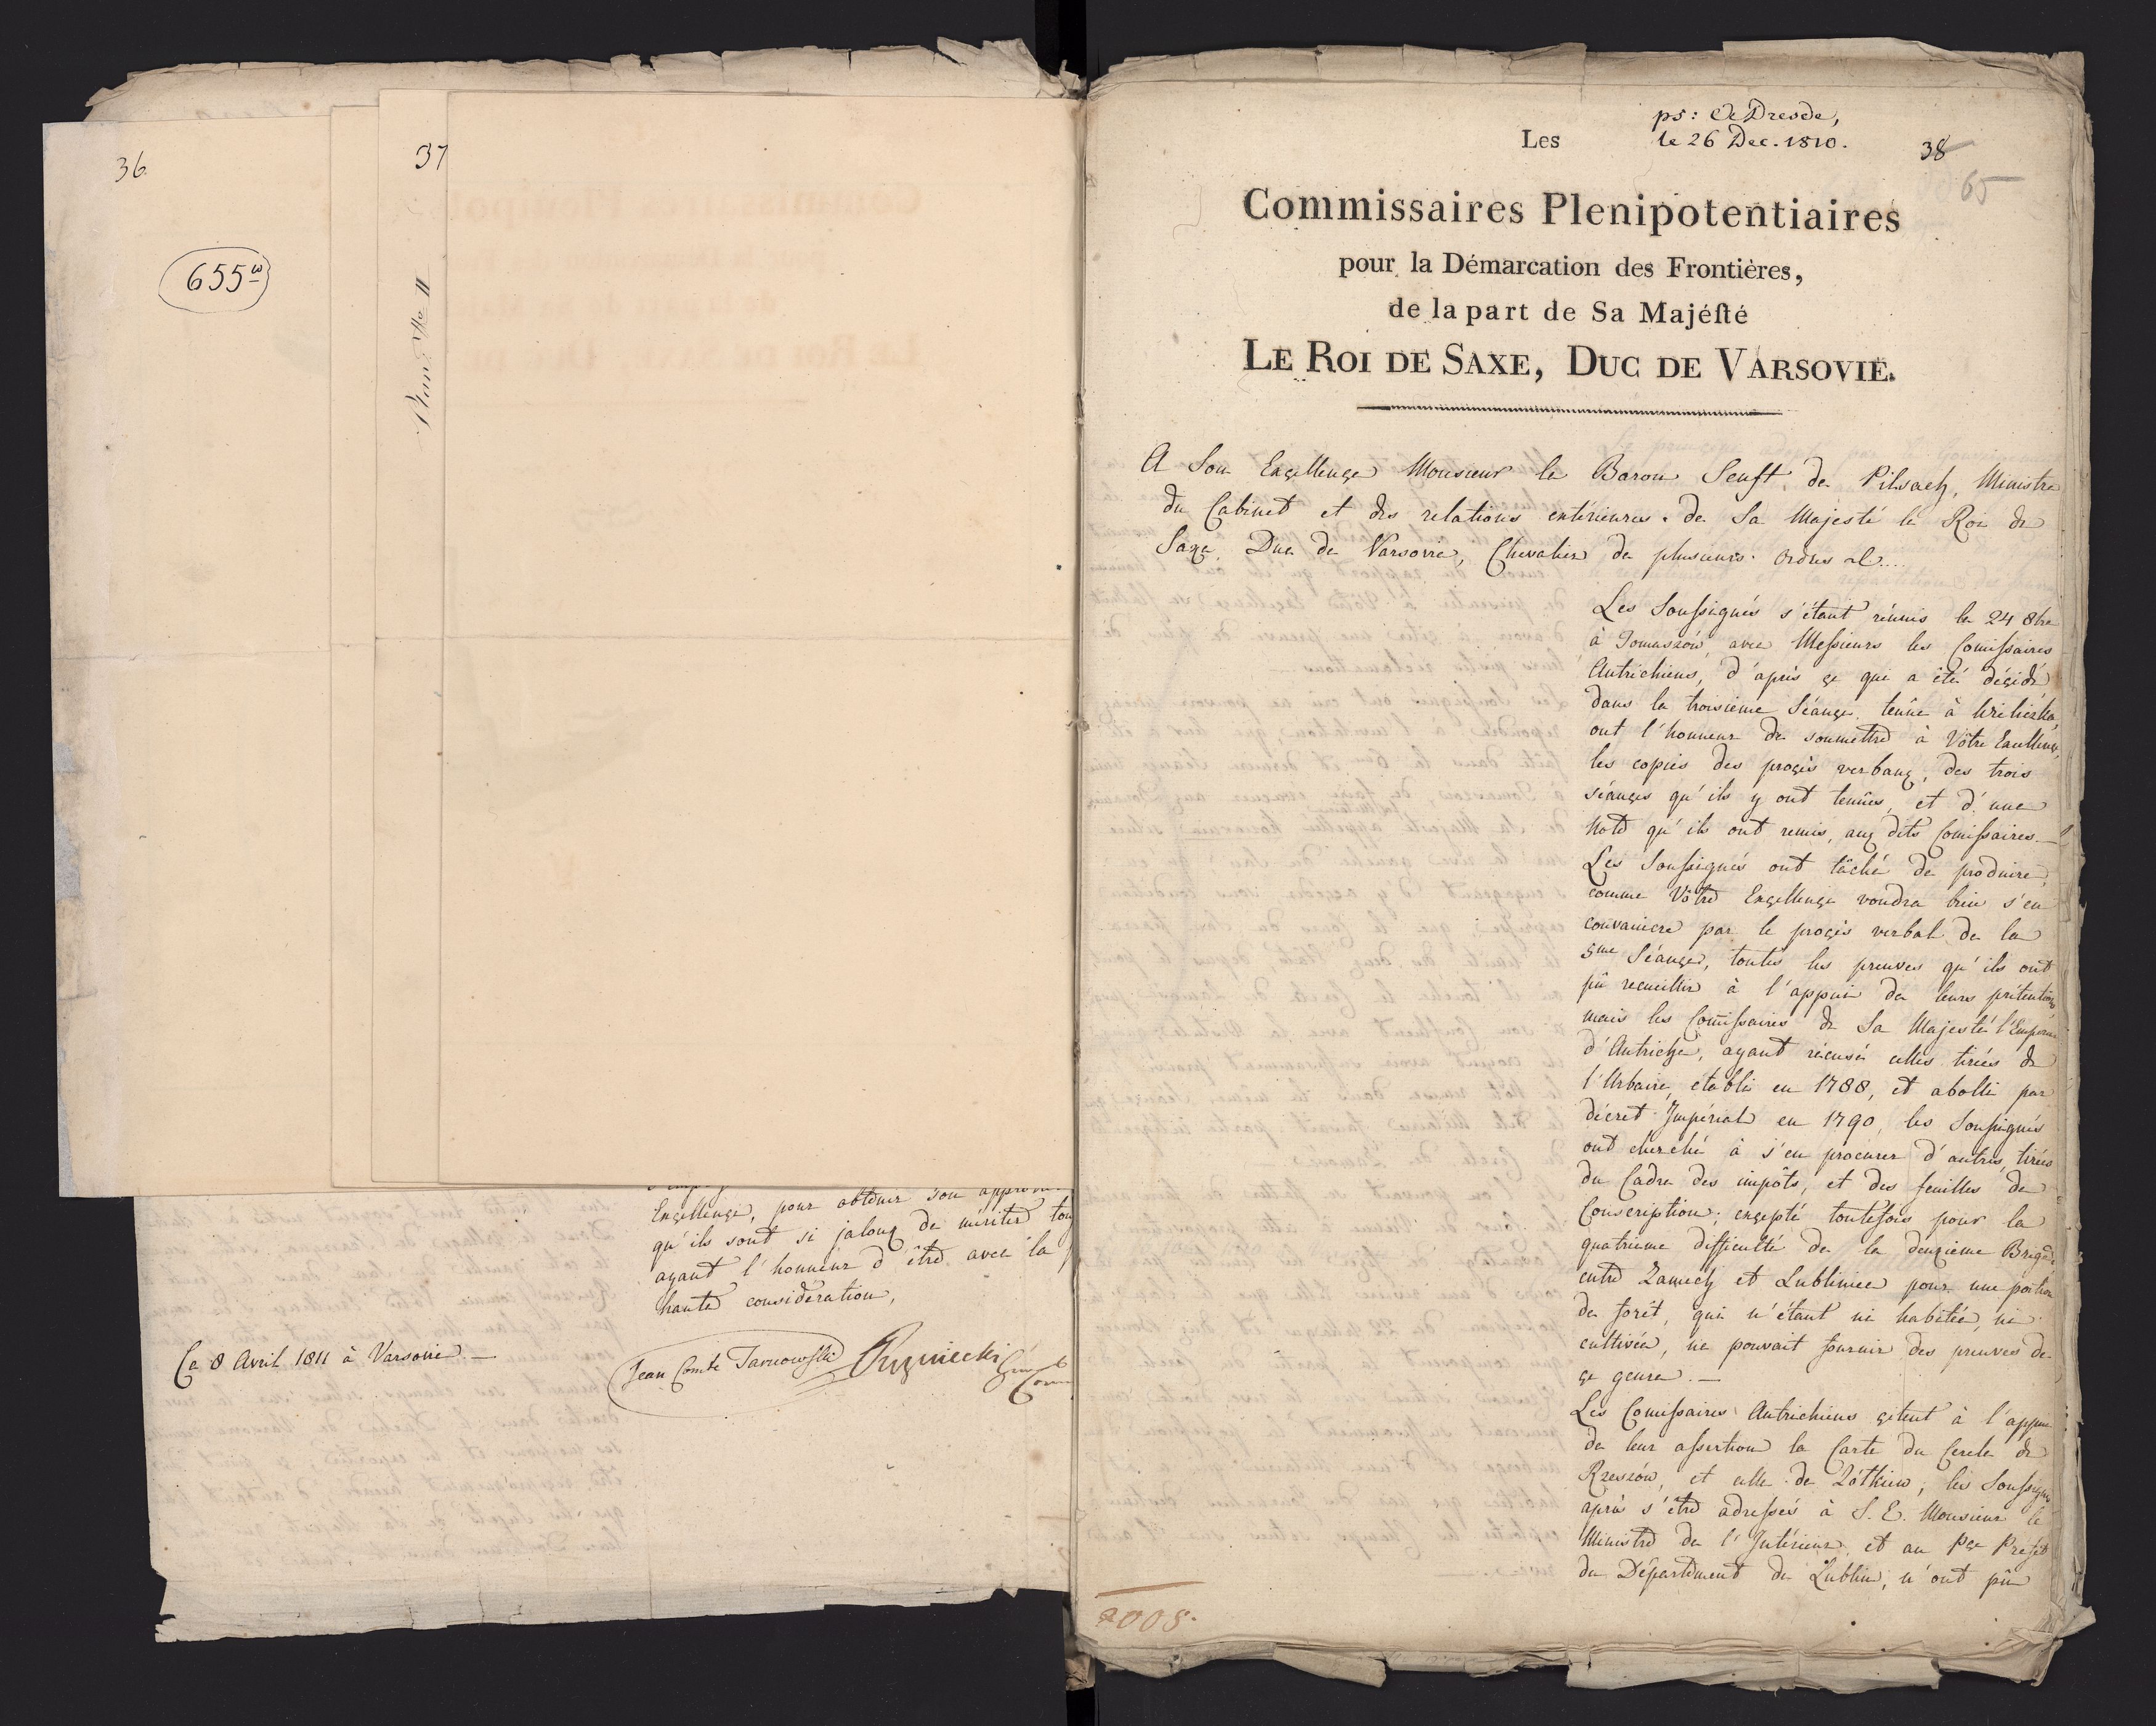 36.
655
37
Plan No II
Excellence, pour obtenir son
qu'ils sont si jaloux de mériter
ayant l'honneur d'être avec la
haute considération,
Ce 8 Avril 1811 à Varsovie. —
Jean Comte Tarnowski
ps: de Dresde,
Les
le 26 Dec. 1810.
38
65
Commissaires Plenipotentiaires
pour la Démarcation des Frontières,
de la part de Sa Majéſté
LE ROI DE SAXE, DUC DE VARSOVIE.
A Son Exçellençe Monsieur le Baron Senft de Pilsach, Ministre
du Cabinet et des relations extérieures de Sa Majesté le Roi de
Saxe, Duc de Varsovie, Chevalier de plusieurs Ordres
Les Soussignés s'étant réunis le 24 8bre
à Tomaszów, avec Messieurs les Comissaires
Autrichiens, d'après çe qui a été déçidé
dans la troisieme Séançe, tenûe à Wieliczka,
ont l'honneur de soumettre à Vôtre Excellençe,
les copies des proçès verbaux, des trois
séançes qu'ils y ont tenûes, et d'une
Note qu'ils ont remis, aux dits Comissaires. —
Les Soussignés ont tâché de produire,
comme Vôtre Exçellençe voudra bien s'en
convaincre par le proçès verbal de la
5me Séançe, toutes les preuves qu'ils ont
pû recueillir à l'appui de leurs prétentions,
mais les Comissaires de Sa Majesté l'Empereur
d'Autriche, ayant récusé celles tirées de
l'Urbaire, établi en 1788, et abolli par
décret Impérial en 1790, les Soussignés
ont cherché à s'en procurer d'autres, tirées
du Cadre des impôts, et des feuilles de
Conscription; exçepté toutefois pour la
quatrieme difficulté de la deuxieme Brigade
entre Zamech et Lubliniec pour une portion
de forêt, qui n'étant ni habitée, ni
cultivée, ne pouvait fournir des preuves de
çe genre. —
Les Comissaires Autrichiens çitent à l'appui
de leur assertion la Carte du Cercle de
Rzeszów, et celle de Zółkiew; les Soussignés
après s'être adressés à S. E. Monsieur le
Ministre de l'Intérieur, et au Prefét
du Départément de Lublin, n'ont pû
2005.